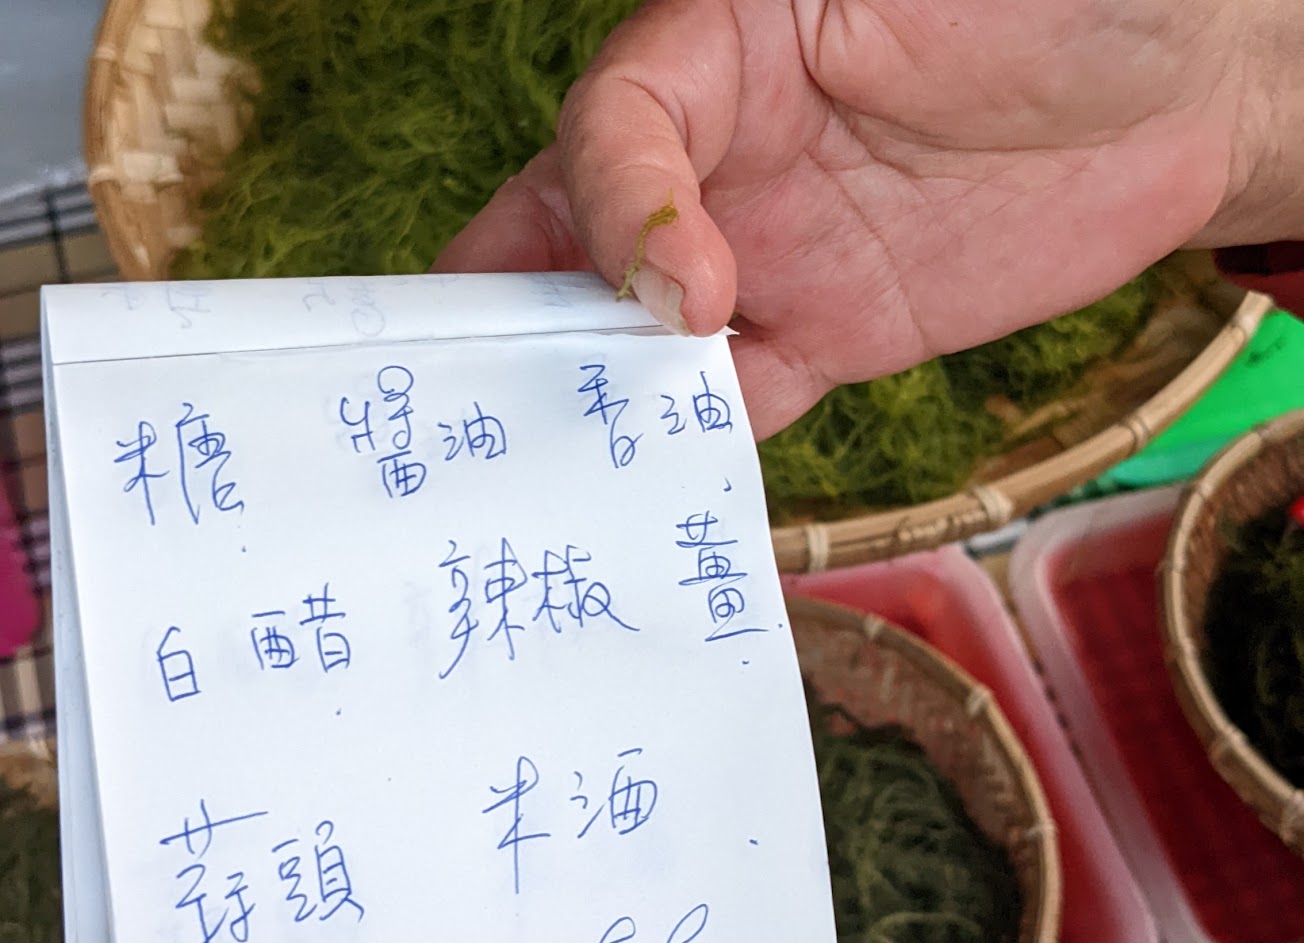 糖 醬油 香油
白醋 辣椒 薑
蒜頭 米酒